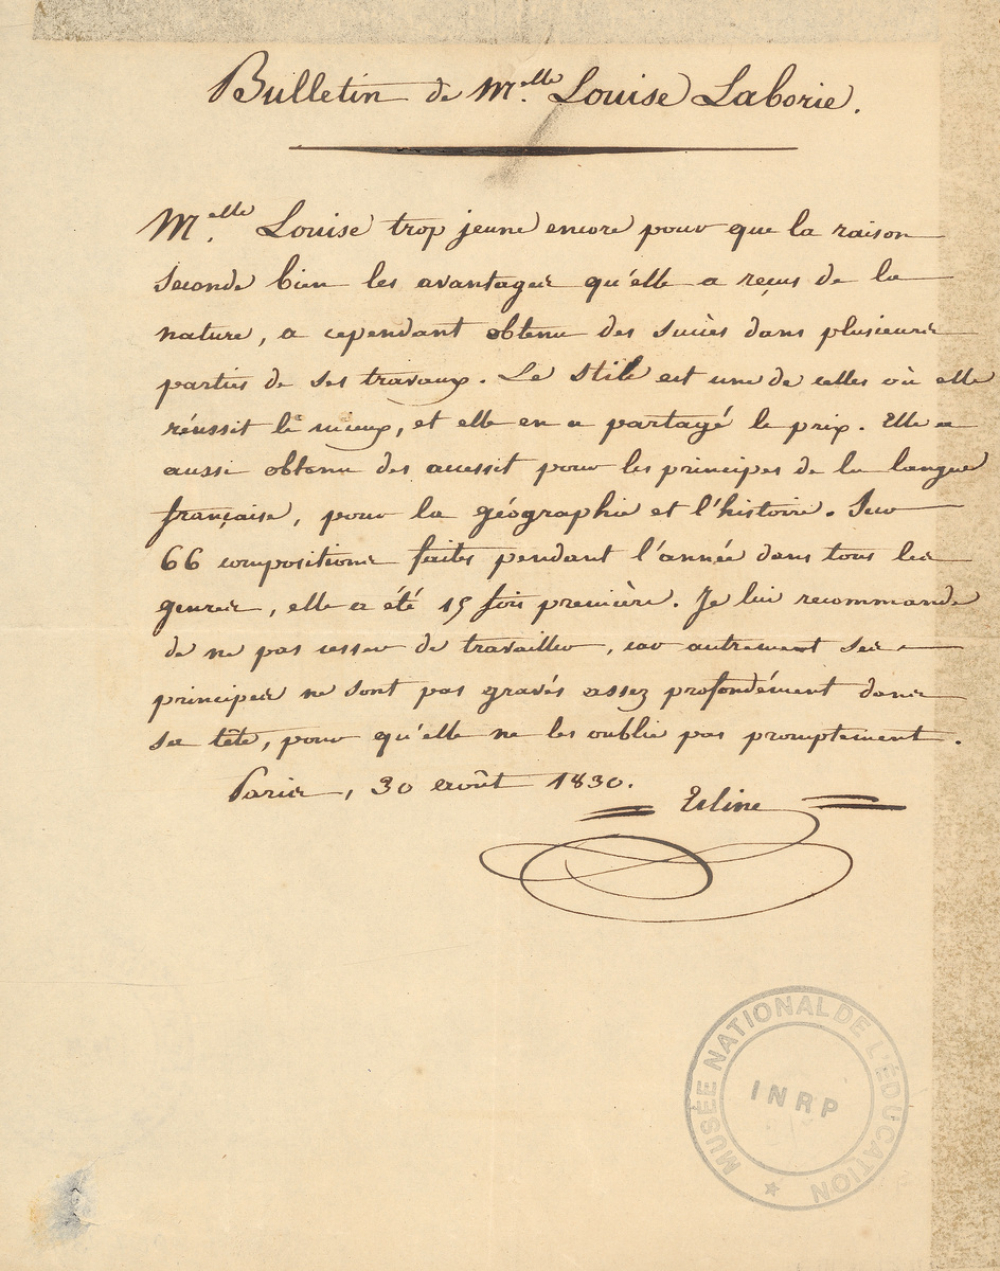 Bulletin de M.elle Louise Laborie.
M.elle Louise trop jeune encore pour que la raison
seconde bien les avantages qu'elle a reçus de la
nature, a cependant obtenu des succès dans plusieurs
parties de ses travaux. Le stile est une de celles où elle
réussit le mieux, et elle en a partagé le prix. Elle a
aussi obtenu des accessit pour les principes de la langue
française, pour la géographie et l'histoire. Sur
66 compositions faites pendant l'année dans tous les
genres, elle a été 15 fois première. Je lui recommande
de ne pas cesser de travailler, car autrement ses
principes ne sont pas gravés assez profondément dans
sa tête, pour qu'elle ne les oublie pas promptement.
Paris, 30 août 1830.
MUSÉE NATIONAL DE L'ÉDUCATION
INRP